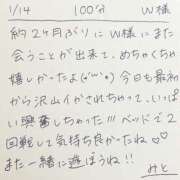 1/14 100分 W様
約2ヶ月ぶりにW様にまた
会うことが出来て、めちゃくちゃ
嬉しかったよ(´･･`)♪ 今日も最初
から沢山イかされちゃって、いっぱ
い興奮しちゃった!!! ベッドで2
回戦して気持ち良かったね♡♥
また一緒に遊ぼうね!!
みと